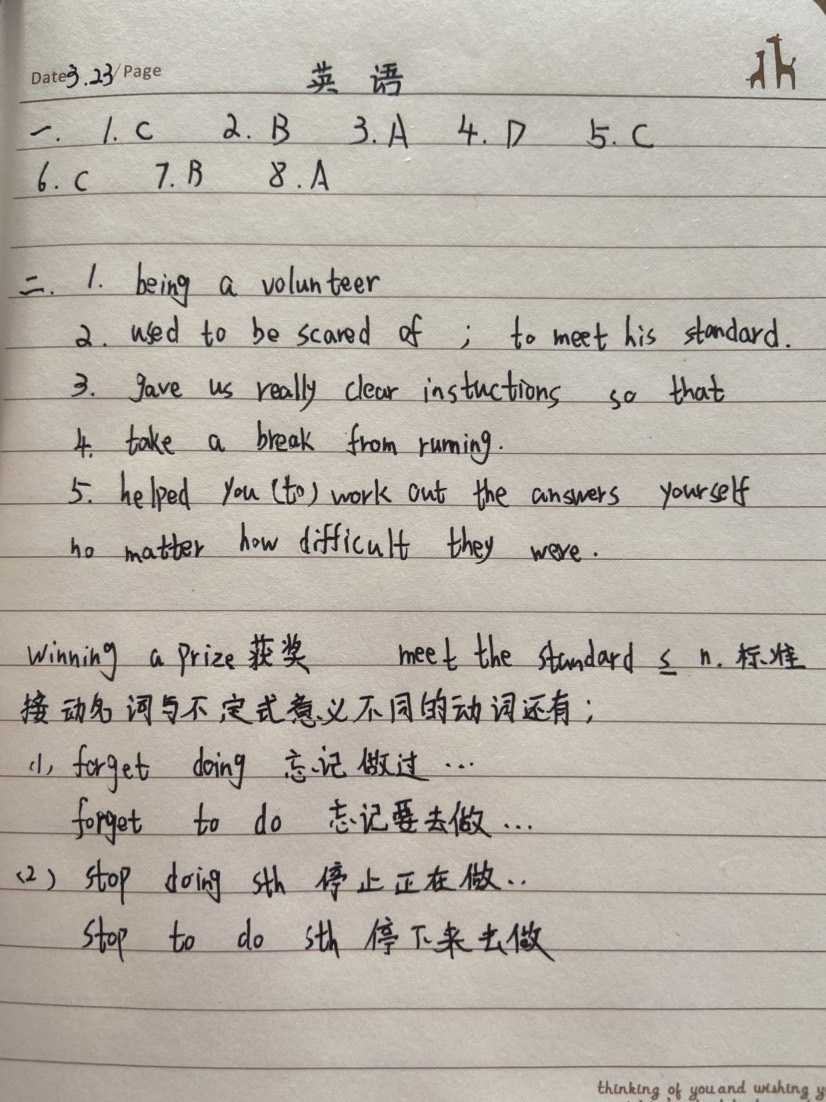 Date3.23/Page
英语
一. 1. C 2. B 3. A 4. D 5. C
6. C 7. B 8. A
二. 1. being a volunteer
2. used to be scared of ; to meet his standard.
3. gave us really clear instuctions so that
4. take a break from ruming.
5. helped you (to) work out the answers yourself
no matter how difficult they were.
Winning a prize 获奖 meet the standard ≤ n. 标准
接动名词与不定式意义不同的动词还有;
(1) forget doing 忘记做过…
forget to do 忘记要去做…
(2) stop doing sth 停止正在做..
stop to do sth 停下来去做
thinking of you and wishing y